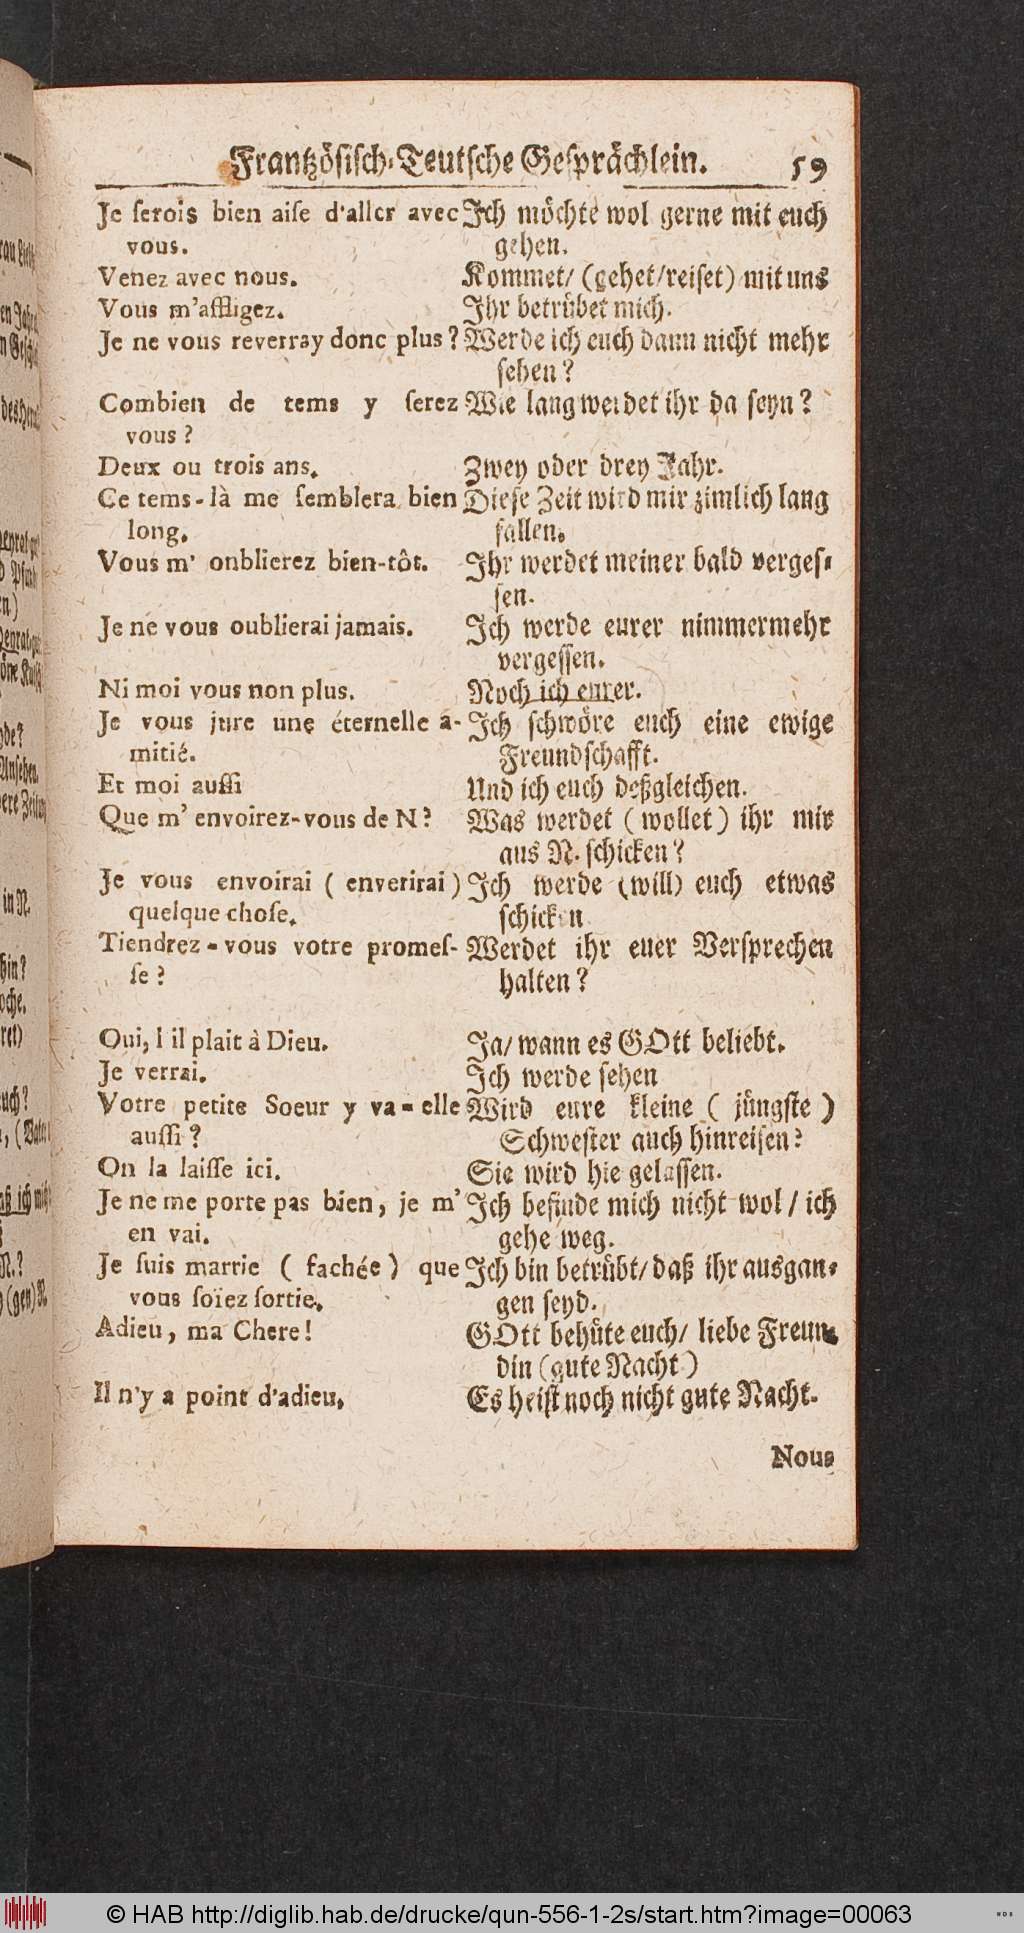 Frantzösisch-Teutsche Gesprächlein. 59
Je serois bien aise d'aller avec
vous.
Venez avec nous.
Vous m'affligez.
Je ne vous reverray donc plus?
Combien de tems y serez
vous?
Deux ou trois ans.
Ce tems-là me semblera bien
long.
Vous m' onblierez bien-tôt.
Je ne vous oublierai jamais.
Ni moi vous non plus.
Je vous jure une éternelle a-
mitié.
Et moi aussi
Que m' envoirez-vous de N?
Je vous envoirai (enverirai)
quelque chose.
Tiendrez-vous votre promes-
se?
Oui, s il plait à Dieu.
Je verrai.
Votre petite Soeur y va-elle
aussi?
On la laisse ici.
Je ne me porte pas bien, je m'
en vai.
Je suis marrie (fachée) que
vous soïez sortie.
Adieu, ma Chere!
Il n'y a point d'adieu.
Ich möchte wol gerne mit euch
gehen.
Kommet/ (gehet/reiset) mit uns
Ihr betrübet mich.
Werde ich euch dann nicht mehr
sehen?
Wie lang werdet ihr da seyn?
Zwey oder drey Jahr.
Diese Zeit wird mir zimlich lang
fallen.
Ihr werdet meiner bald verges-
sen.
Ich werde eurer nimmermehr
vergessen.
Noch ich eurer.
Ich schwöre euch eine ewige
Freundschafft.
Und ich euch deßgleichen.
Was werdet (wollet) ihr mir
aus N. schicken?
Ich werde (will) euch etwas
schicken
Werdet ihr euer Versprechen
halten?
Ja/ wann es GOtt beliebt.
Ich werde sehen
Wird eure kleine (jüngste)
Schwester auch hinreisen?
Sie wird hie gelassen.
Ich befinde mich nicht wol/ ich
gehe weg.
Ich bin betrübt/ daß ihr ausgan-
gen seyd.
GOtt behüte euch/ liebe Freun-
din (gute Nacht)
Es heist noch nicht gute Nacht.
Nous
© HAB http://diglib.hab.de/drucke/qun-556-1-2s/start.htm?image=00063